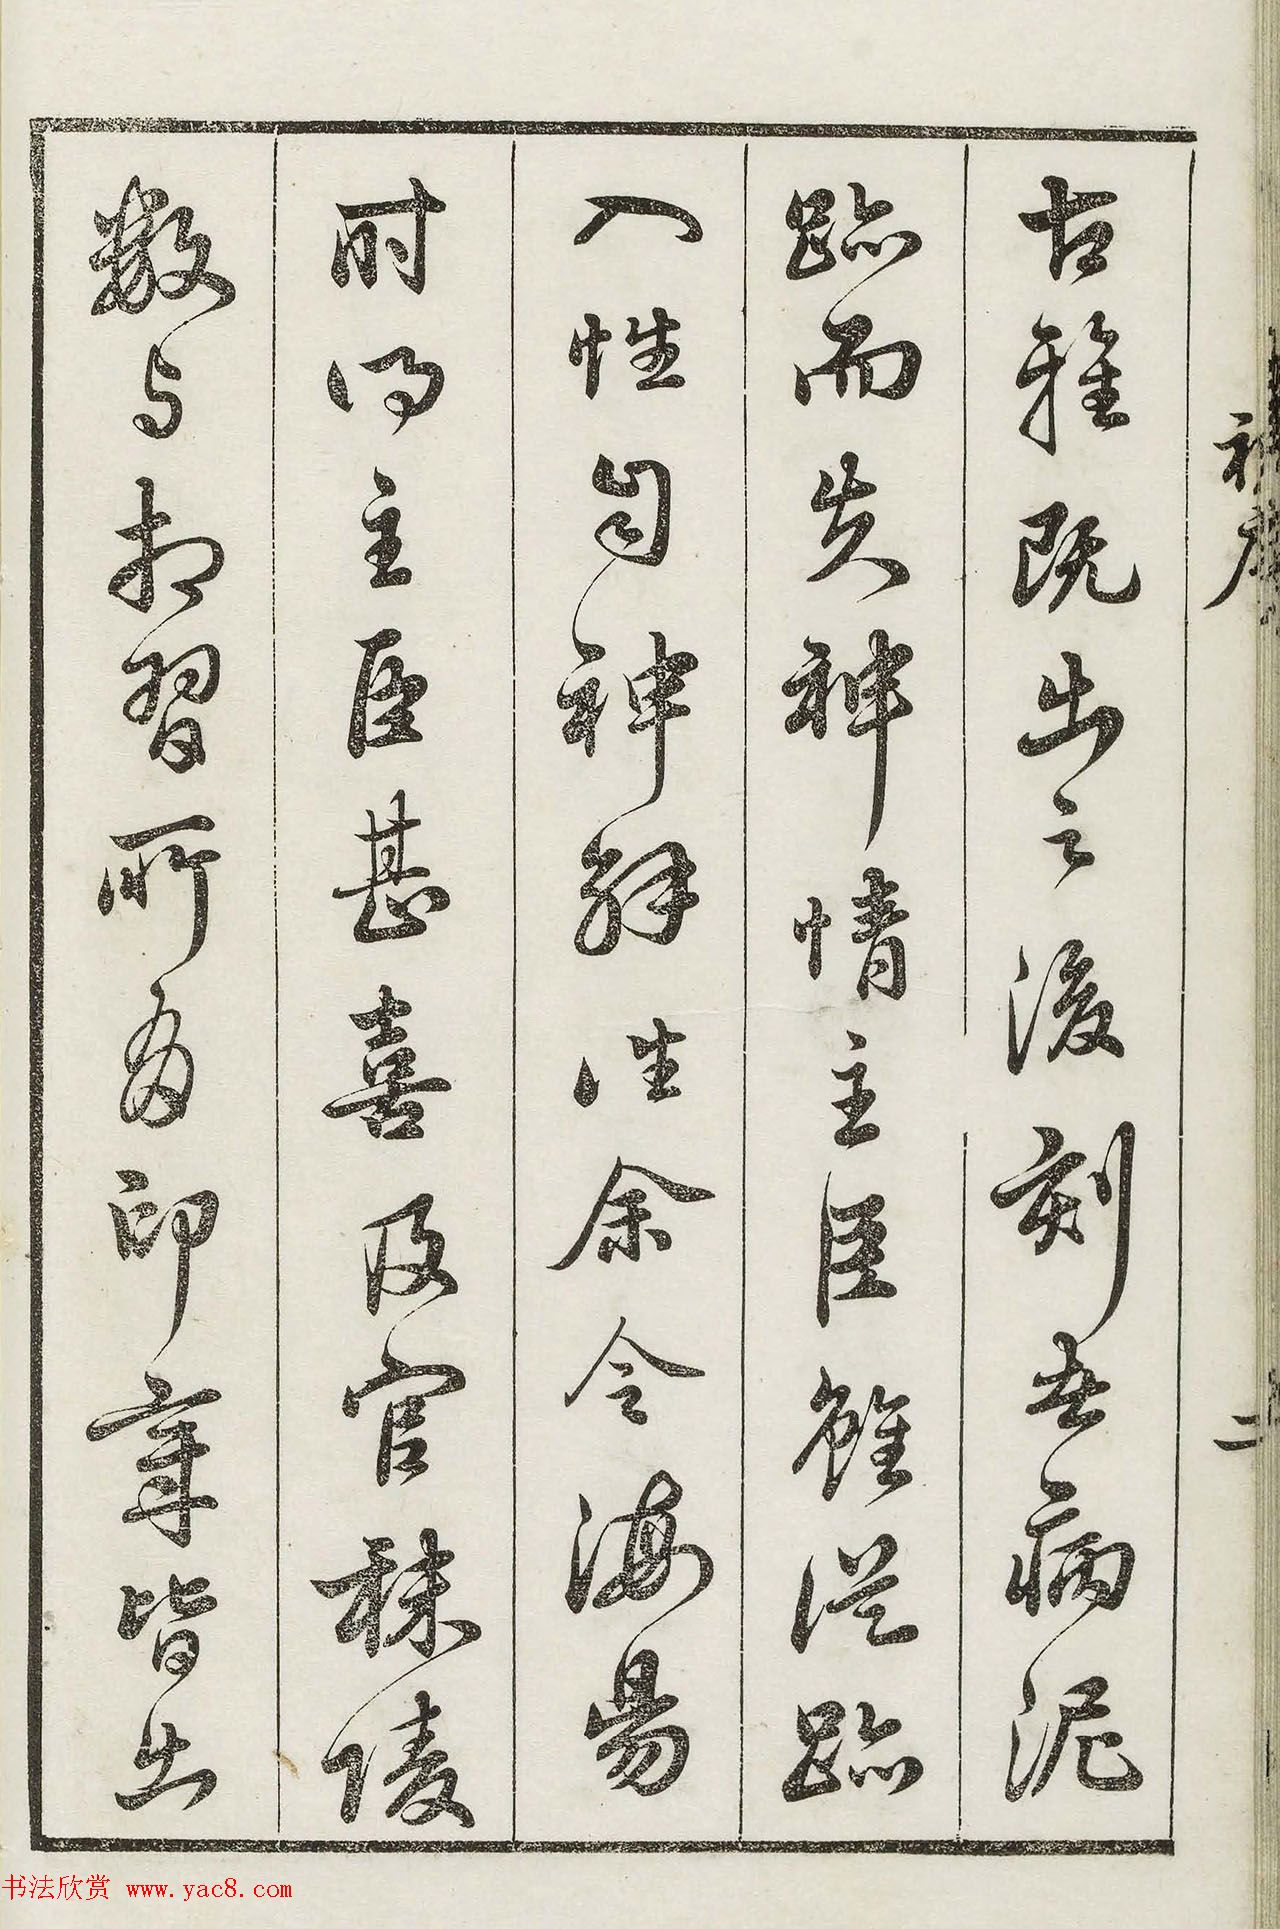 古雅既出之後刻者病泥
跡而失神情主臣雖從跡
入性自神解往余令海昜
時得主臣甚喜及官秣陵
數與相習所為印章皆出
二
书法欣赏 www.yac8.com